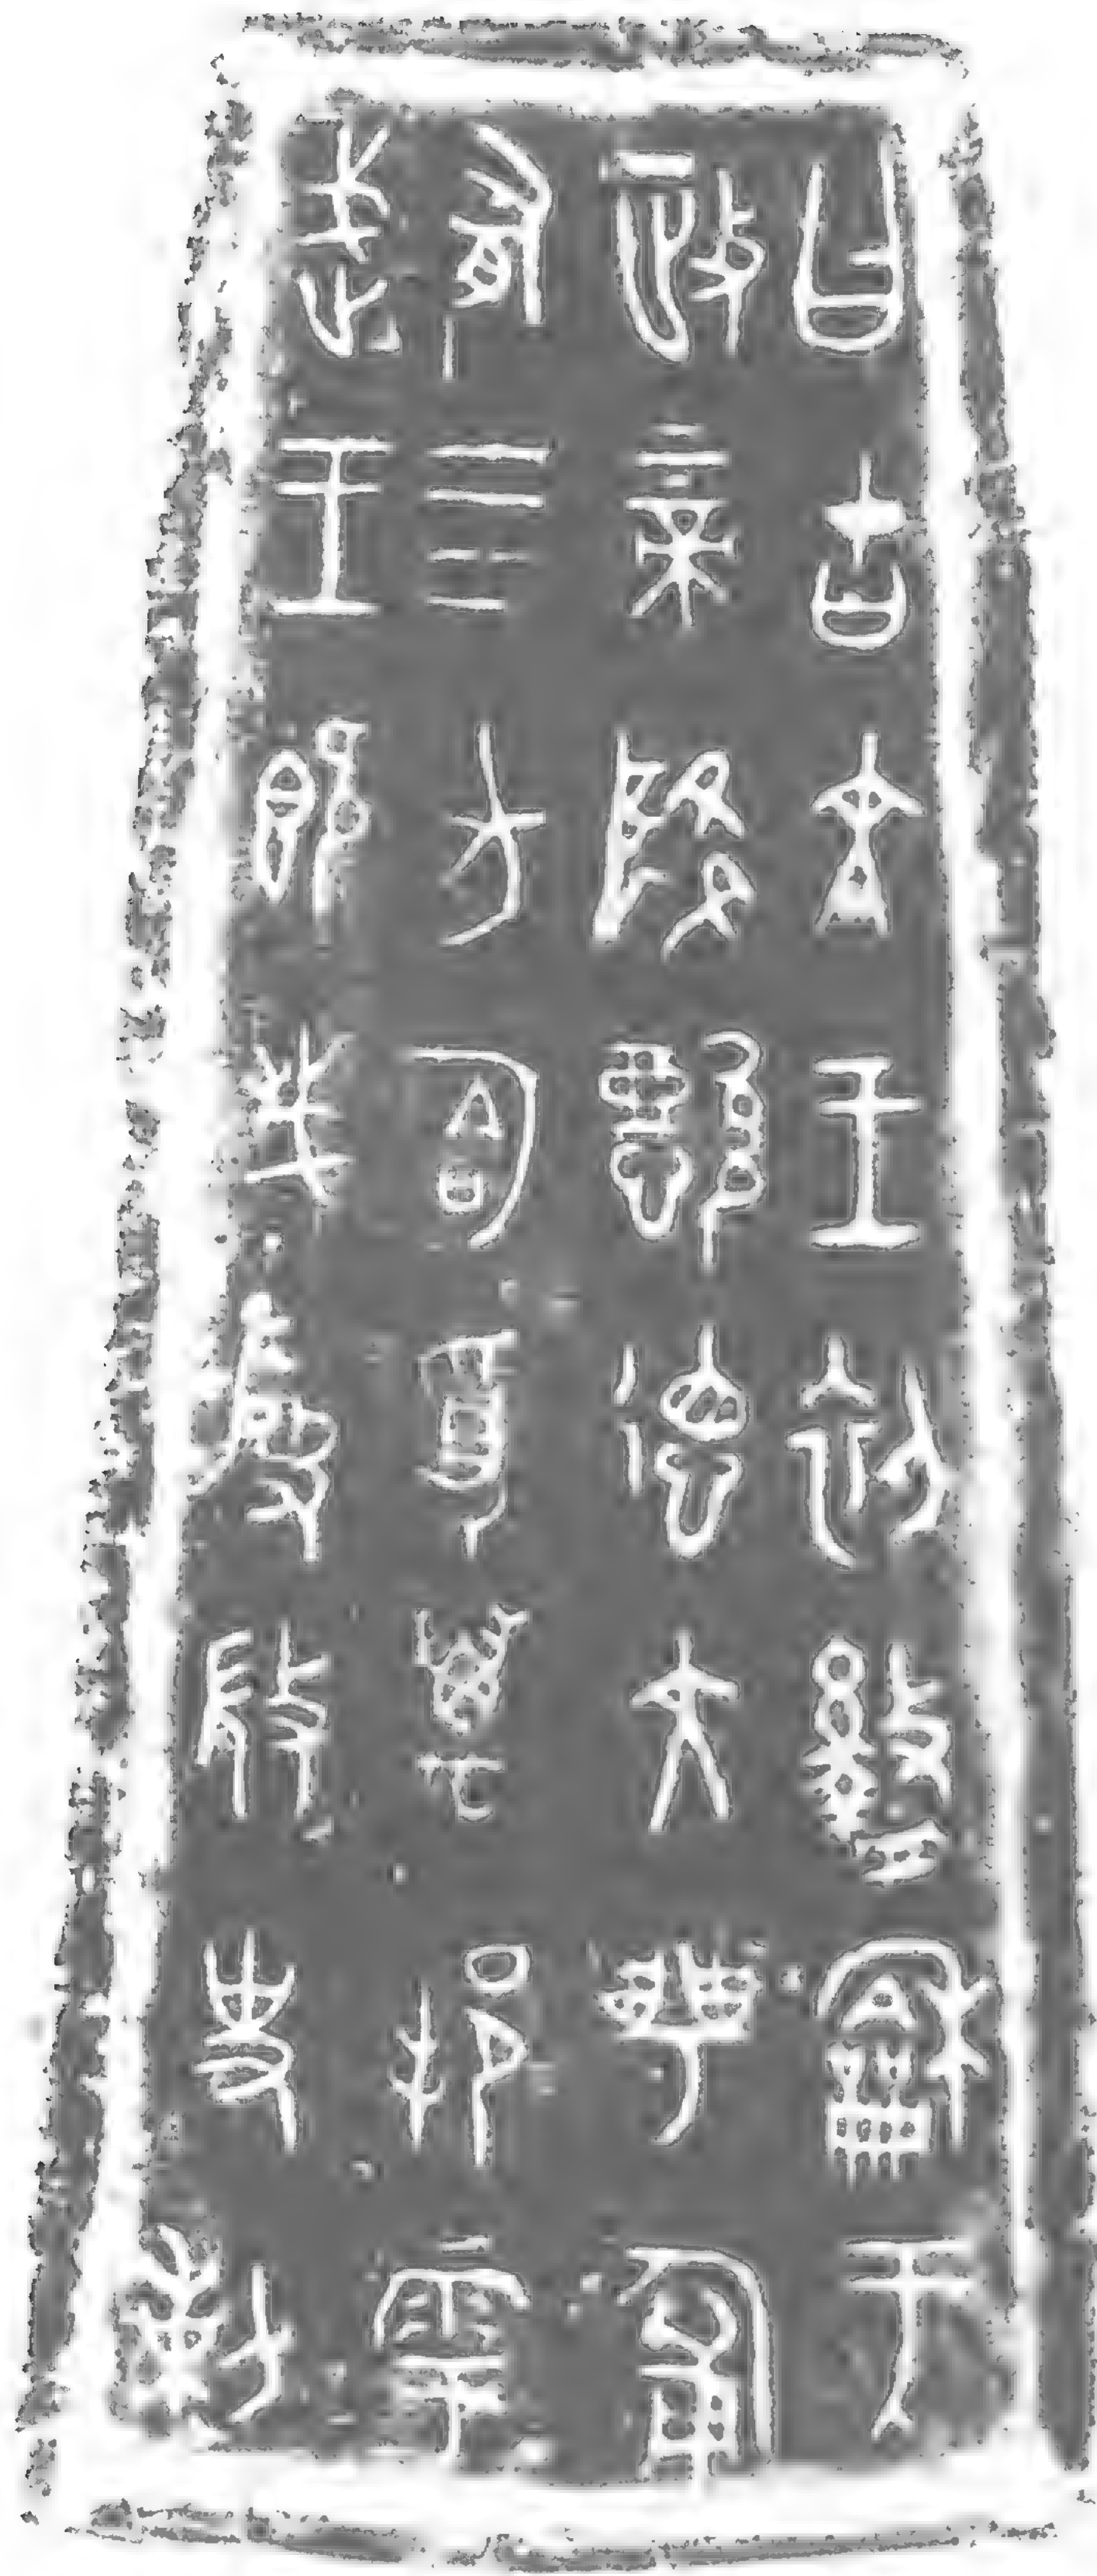 曰古文王初盭龢于
政上帝降懿德大甹匍
有四方匌受萬邦雩
武王既𢦏殷𢼸史剌